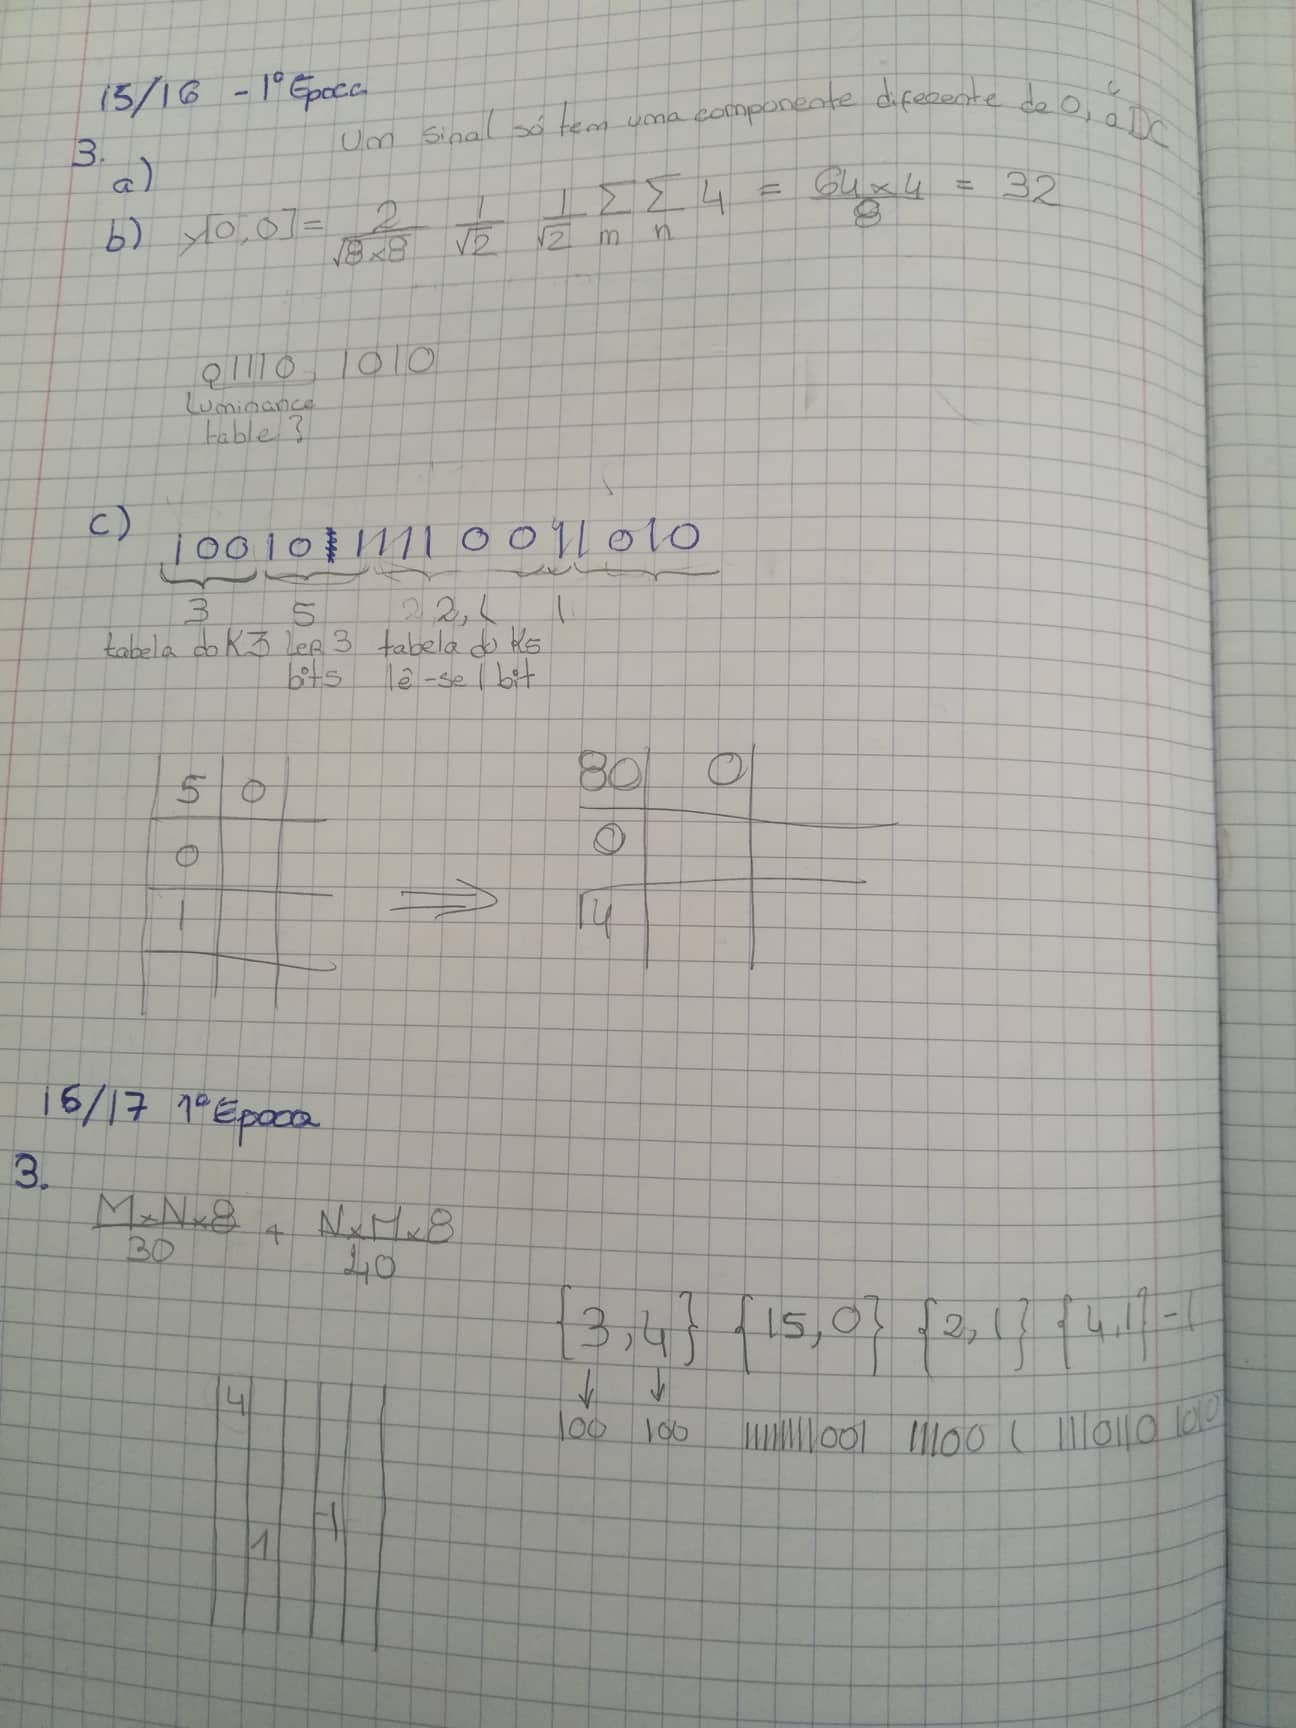 15/16 - 1º Época
Um sinal só tem uma componente diferente de 0, é a DC
3.
a)
b) y[0,0] = 2/√8×8 1/√2 1/√2 Σm Σn 4 = 64×4/8 = 32
01110, 1010
Luminance
table?
c) 100101 1111 0011010
3 5 2,1 1
tabela do K3 ler 3 tabela do K5
bits lê-se 1 bit
5 0 80 0
0 ⇒ 0
1 14
16/17 1º Epoca
3.
M×N×8/30 + N×M×8/40
{3,4} {15,0} {2,1} {4,1} -1
↓ ↓
4 100 100 11111111001 11100 1 1110110
-1
1